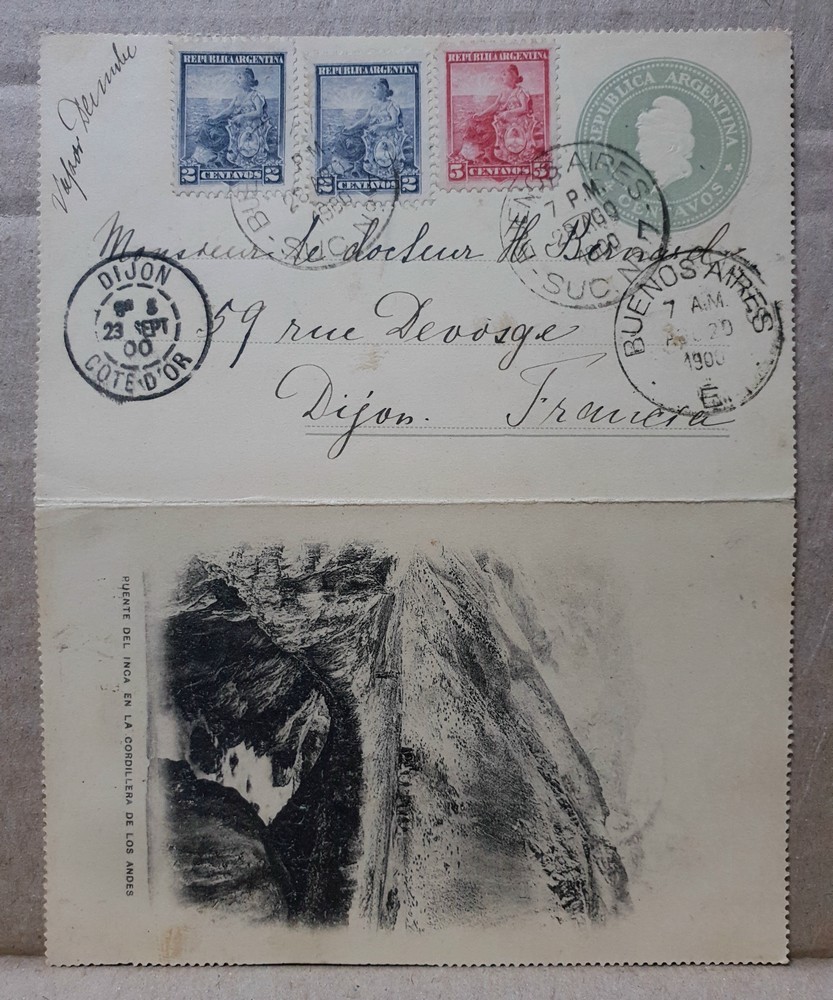 Vapor
REPUBLICA ARGENTINA
2 CENTAVOS 2
REPUBLICA ARGENTINA
2 CENTAVOS 2
REPUBLICA ARGENTINA
5 CENTAVOS 5
REPUBLICA ARGENTINA
CENTAVOS
BUENOS AIRES
7 P.M.
SUC. No 7
Monsieur le docteur H. Bernard
59 rue Devosge
Dijon. Francia
DIJON
23 SEPT
00
COTE-D'OR
BUENOS AIRES
7 A.M.
20
1900
E
PUENTE DEL INCA EN LA CORDILLERA DE LOS ANDES